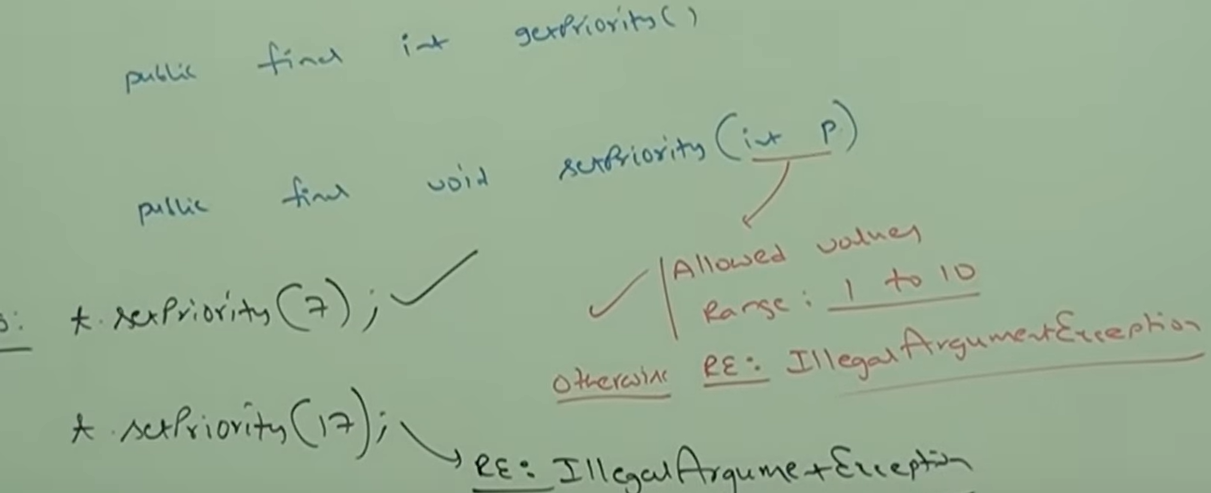 public final int getPriority()
public final void setPriority(int p)
Allowed values
Range: 1 to 10
Otherwise RE: IllegalArgumentException
t.setPriority(7);
t.setPriority(17);
RE: IllegalArgume+Exception